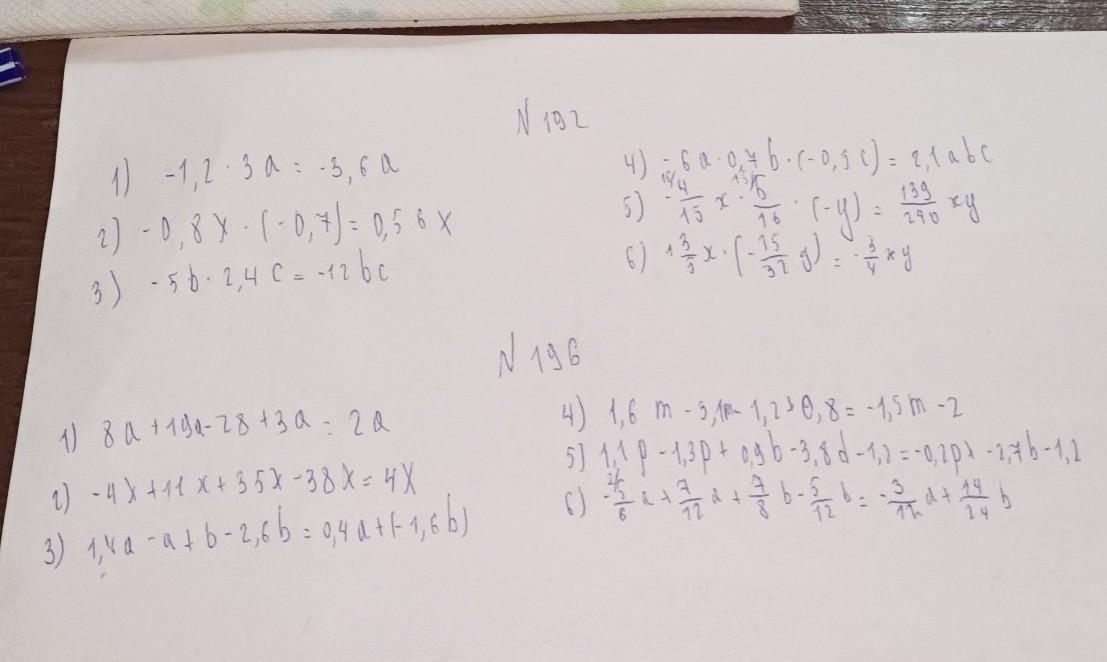 N 192
1) -1,2 · 3a = -3,6a
2) -0,8x · (-0,7) = 0,56x
3) -5b · 2,4c = -12bc
4) -6a · 0,7b · (-0,5c) = 2,1abc
5) -4/15 x · 5/16 · (-y) = 139/240 xy
6) 1 3/5 x · (-15/32 y) = -3/4 xy
N 196
1) 8a + 19a - 28 + 3a = 2a
2) -4x + 11x + 35x - 38x = 4x
3) 1,4a - a + b - 2,6b = 0,4a + (-1,6b)
4) 1,6m - 3,1m - 1,2 - 0,8 = -1,5m - 2
5) 1,1p - 1,3p + 0,9b - 3,8d - 1,2 = -0,2p - 2,7b - 1,2
6) -5/6 a + 7/12 a + 7/8 b - 5/12 b = -3/12 a + 14/24 b